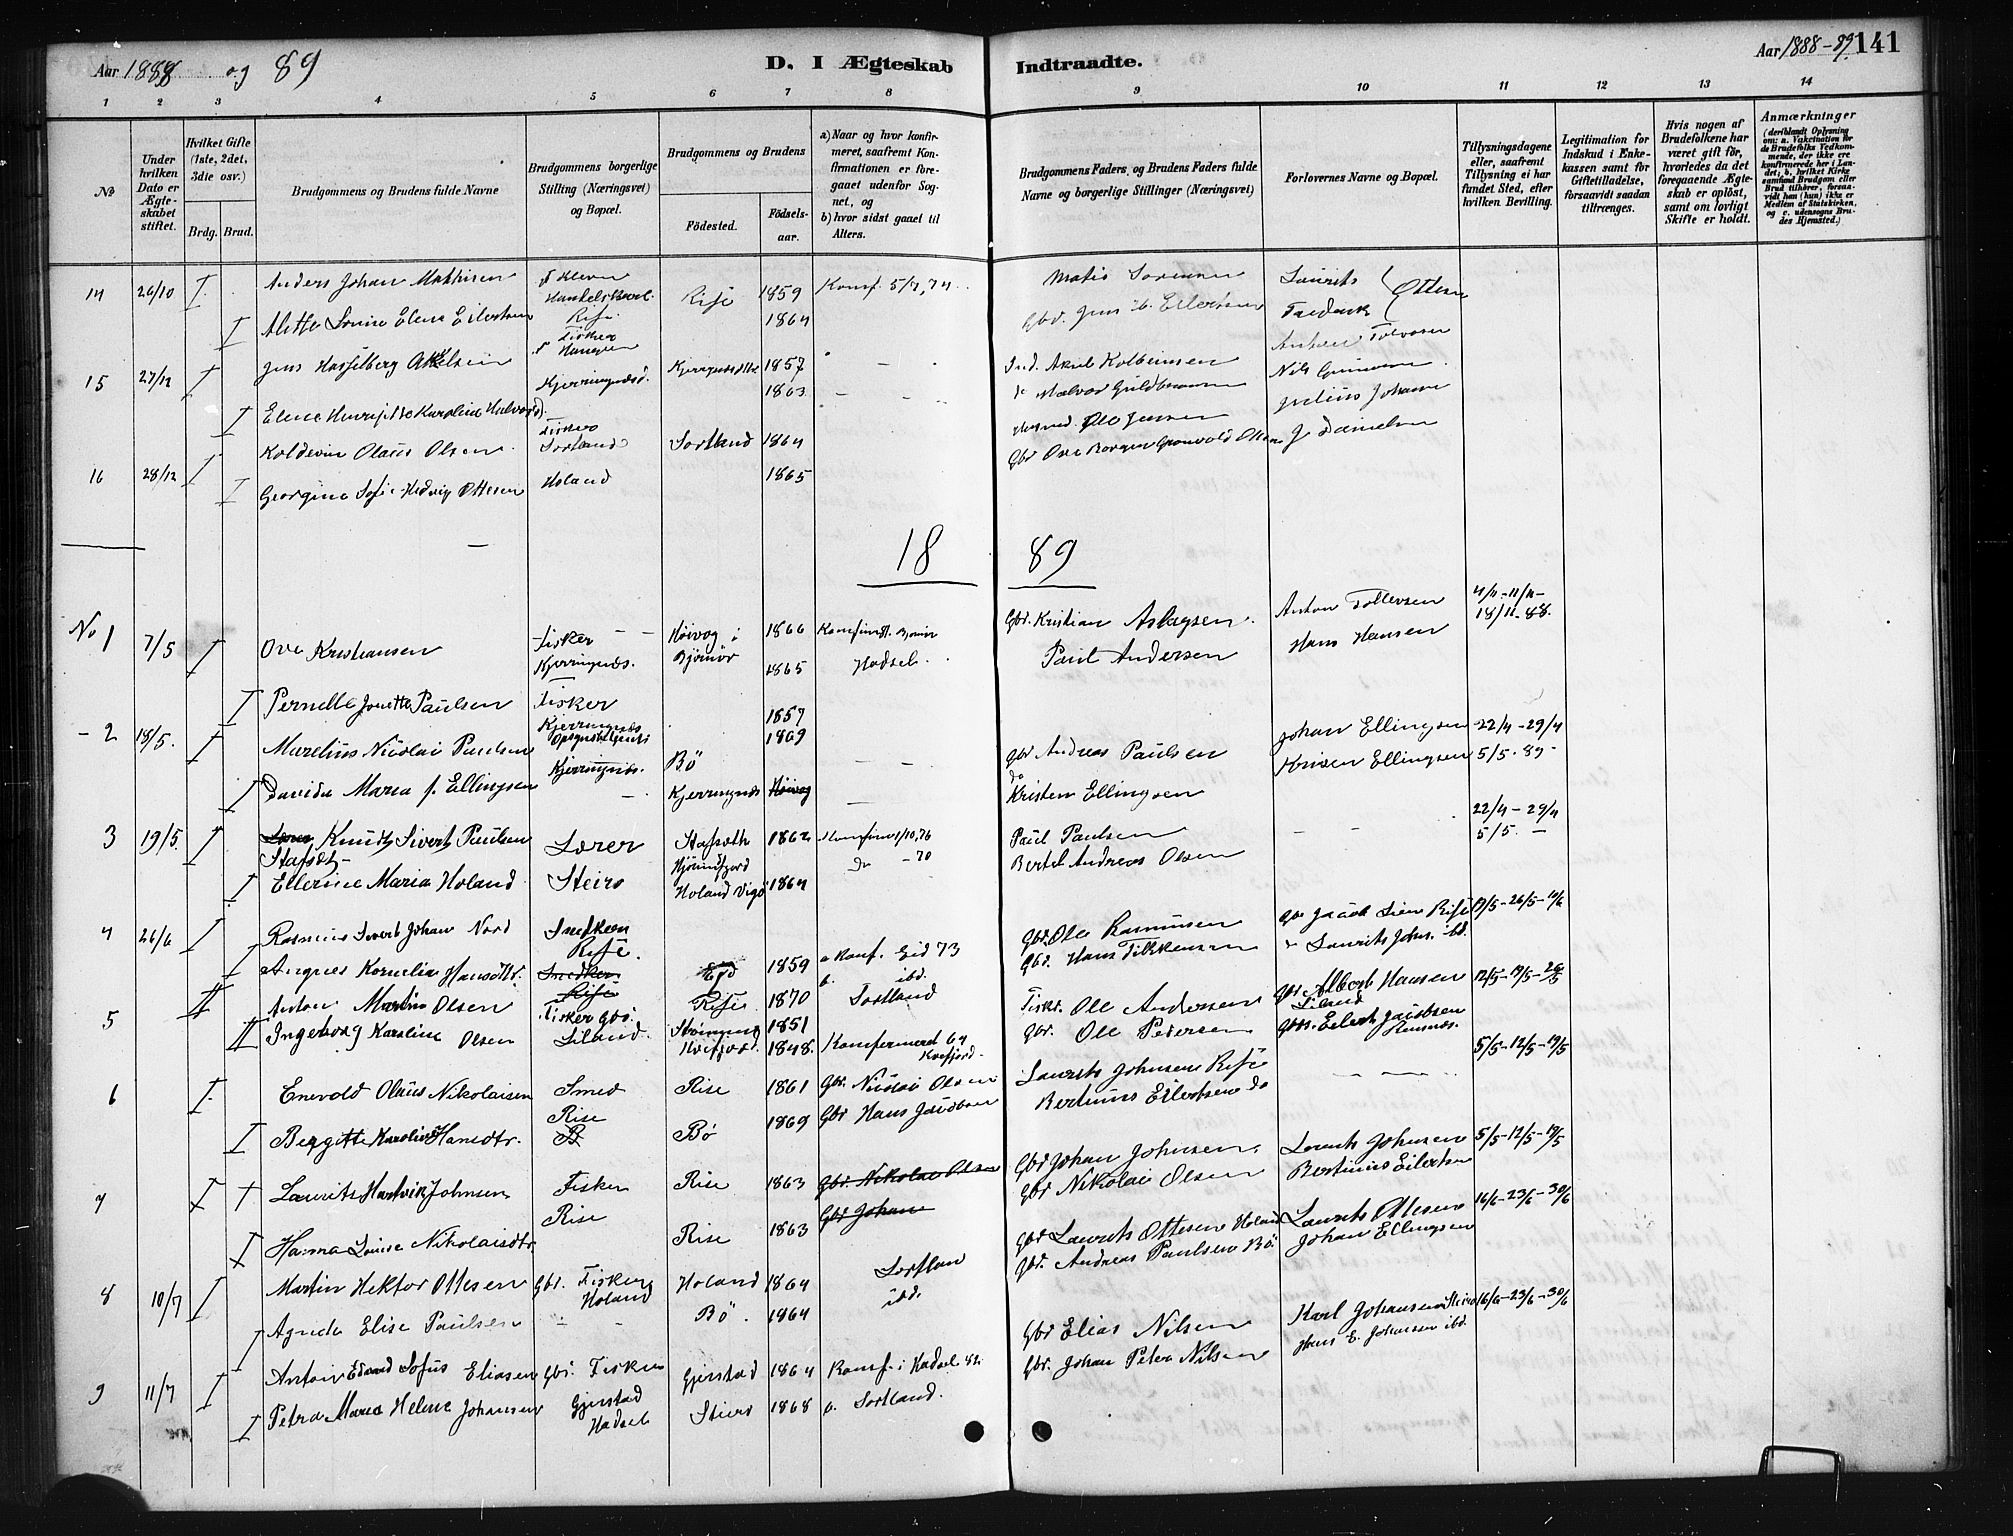 Aar 1888 og 89
D. I Ægteskab Indtraadte.
Aar 1888-89. 141
1 2 3 4 5 6 7 8 9 10 11 12 13 14
No
Under hvilken Dato er Ægteskabet stiftet.
Hvilket Gifte (1ste, 2det, 3die osv.)
Brdg. Brud.
Brudgommens og Brudens fulde Navne
Brudgommens borgerlige Stilling (Næringsvei) og Bopæl.
Brudgommens og Brudens
Fødested.
Fødselsaar.
a) Naar og hvor konfirmeret, saafremt Konfirmationen er foregaaet udenfor Sognet, og
b) hvor sidst gaaet til Alters.
Brudgommens Faders, og Brudens Faders fulde Navne og borgerlige Stillinger (Næringsvei)
Forlovernes Navne og Bopæl.
Tillysningsdagene eller, saafremt Tillysning ei har fundet Sted, efter hvilken Bevilling.
Legitimation for Indskud i Enkekassen samt for Giftetilladelse, forsaavidt saadan tiltrænges.
Hvis nogen af Brudefolkene har været gift før, hvorledes da det foregaaende Ægteskab er opløst, samt om lovligt Skifte er holdt.
Anmærkninger
14 26/10 I Anders Johan Mathisen Handelskarl Risø 1859 Konf. 5/7, 74 Matis Sørensen Laurits Ottesen
I Aletta Lovise Elene Eilertsen Risø 1864 Gbr. Jens H. Eilertsen Frederik
15 27/12 I Jens Hasselberg Akselsen Fisker Kjerringnæsd. 1857 Ind. Aksel Kolbeinsen Anton Tolevsen
I Elene Henrijette Karolina Halvorsd. 1863 Nils Gunnarsen
16 28/12 I Koldevin Olaus Olsen Fisker Sortland Sortland 1864 Ole Jensen Julius Johansen
I Georgine Sofie Hedvig Ottesen Holand 1865 Gbr Ove Borgen Grønvold Olsen J. Danielsen
1889
No 1 7/5 I Ove Kristiansen Fisker Kjerringnæs. Høivog i Bjørnør 1866 Konfirmt. Bjørnør Gbr. Kristian Aslagsen. Anton Tollevsen 4/11-11/11-
18/11-88.
I Pernelle Jonetta Paulsen 1865 Hadsel. Paul Andersen Hans Hansen
-2 18/5. I Marelius Nicolai Paulsen Fisker Kjerringnæs Bö 1857 Gbr Andreas Paulsen Johan Ellingsen 22/4-29/4
I Davida Maria f. Ellingsen Kjerringnæs. Kjerringnæs 1869 Høivog do Kristen Ellingsen Krisen Ellingsen 5/5-89-
3 19/5. I Knudt Sivert Paulsen Stafsæth Lærer Stafsæth Hjørundfjord 1862 Konfirm 1/10, 76 Paul Paulsen 22/4-29/4
5/5.-
I Ellerine Maria Holand Steiro Holand Vigø 1864 do -70 Bertel Andreas Olsen
4 26/6 I Rasmus Sivert Johan Nord Snedkeren Risø. Eid 1859 a Konf. Eid 73 Gbr. Ole Rasmussen Gbr Jacob Lien Risø 19/5-26/5-10/6
I Angnes Kornelia Hansdtr. Snedker Risø Risø 1870 b. ibd. Gbr. Hans Fillkensen Laurits Johs. ibd.
5 II Anton Martin Olsen Fisker Gbr. Liland Strømsnes 1851 Sortland Fiskr. Ole Andersen Gbr Albert Hansen Liland 12/5-19/5-26/5
II Ingeborg Karoline Olsen Kvæfjord 1848. Konfirmeret 64 Kvæfjord. Gbr. Ole Pedersen Gbr. Eilert Jacobsen
6 I Enevold Olaus Nikolaisen Smed Rise Rise 1861 Gbr. Nicolai Olsen Laurits Johnsen Risø 5/5-12/5-19/5
I Bergitte Karoline Hansdtr. Bö 1869 Gbr Hans Jacobsen Bertinus Eilertsen do
7 I Laurits Hartvik Johnsen Fisker Rise Rise 1863 Gbr. Nikolai Olsen Gbr Johan Johnsen. Laurits Johnsen 5/5-12/5-19/5
I Hanna Lovise Nikolaisdtr Rise 1863 Gbr Johan Gbr Nikolai Olsen Bertinus Eilertsen
8 10/7 I Martin Hektor Ottesen Gbr. Fisker Holand Holand 1864 Sortlan Gbr Laurits Ottesen Holand Laurits Ottesen 16/6-23/6-30/6
I Agneda Elise Paulsen Bö. 1864 ibd. Gbr. Andreas Paulsen Bö. Johan Ellingsen
9 11/7 I Anton Edvard Sofus Eliasen Gbr. Fisker Gjerstad Hadsel Gjerstad 1864 Konf. i Hadsel 82. Gbr Elias Nilsen Karl Johansen Steiro 16/6-23/6-30/6
I Petra Maria Helene Johansen Steiro 1868 b. Sortland. Gbr. Johan Peter Nilsen Hans E. Johansen ibd.